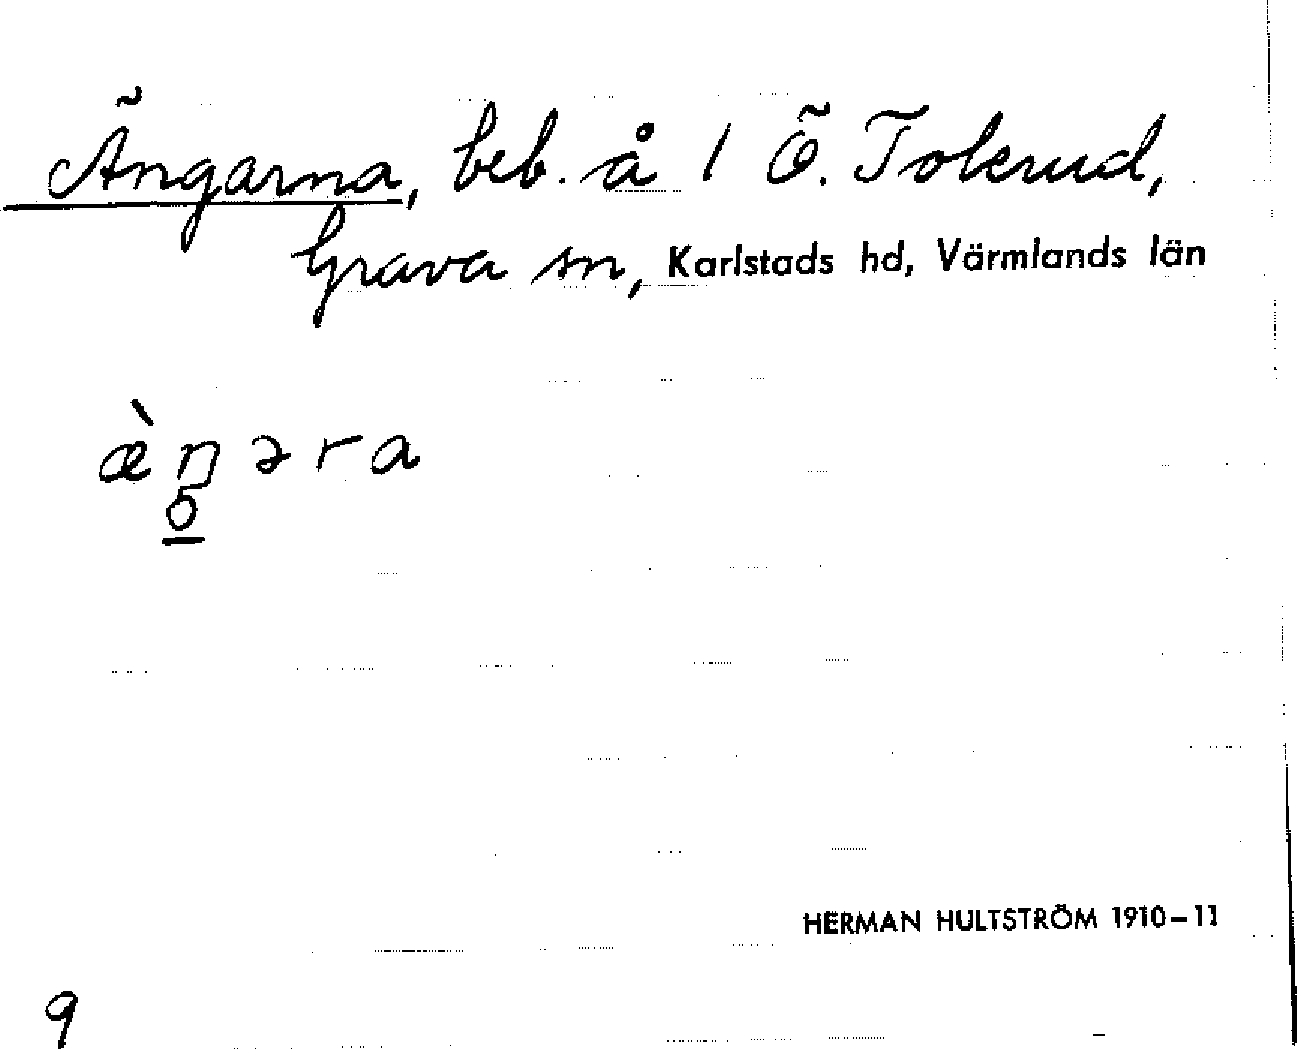 Ängarna, beb. å 1 Ö. Tolerud,
Grava sn, Karlstads hd, Värmlands län
æ̀ŋəra
o
HERMAN HULTSTRÖM 1910–11
9